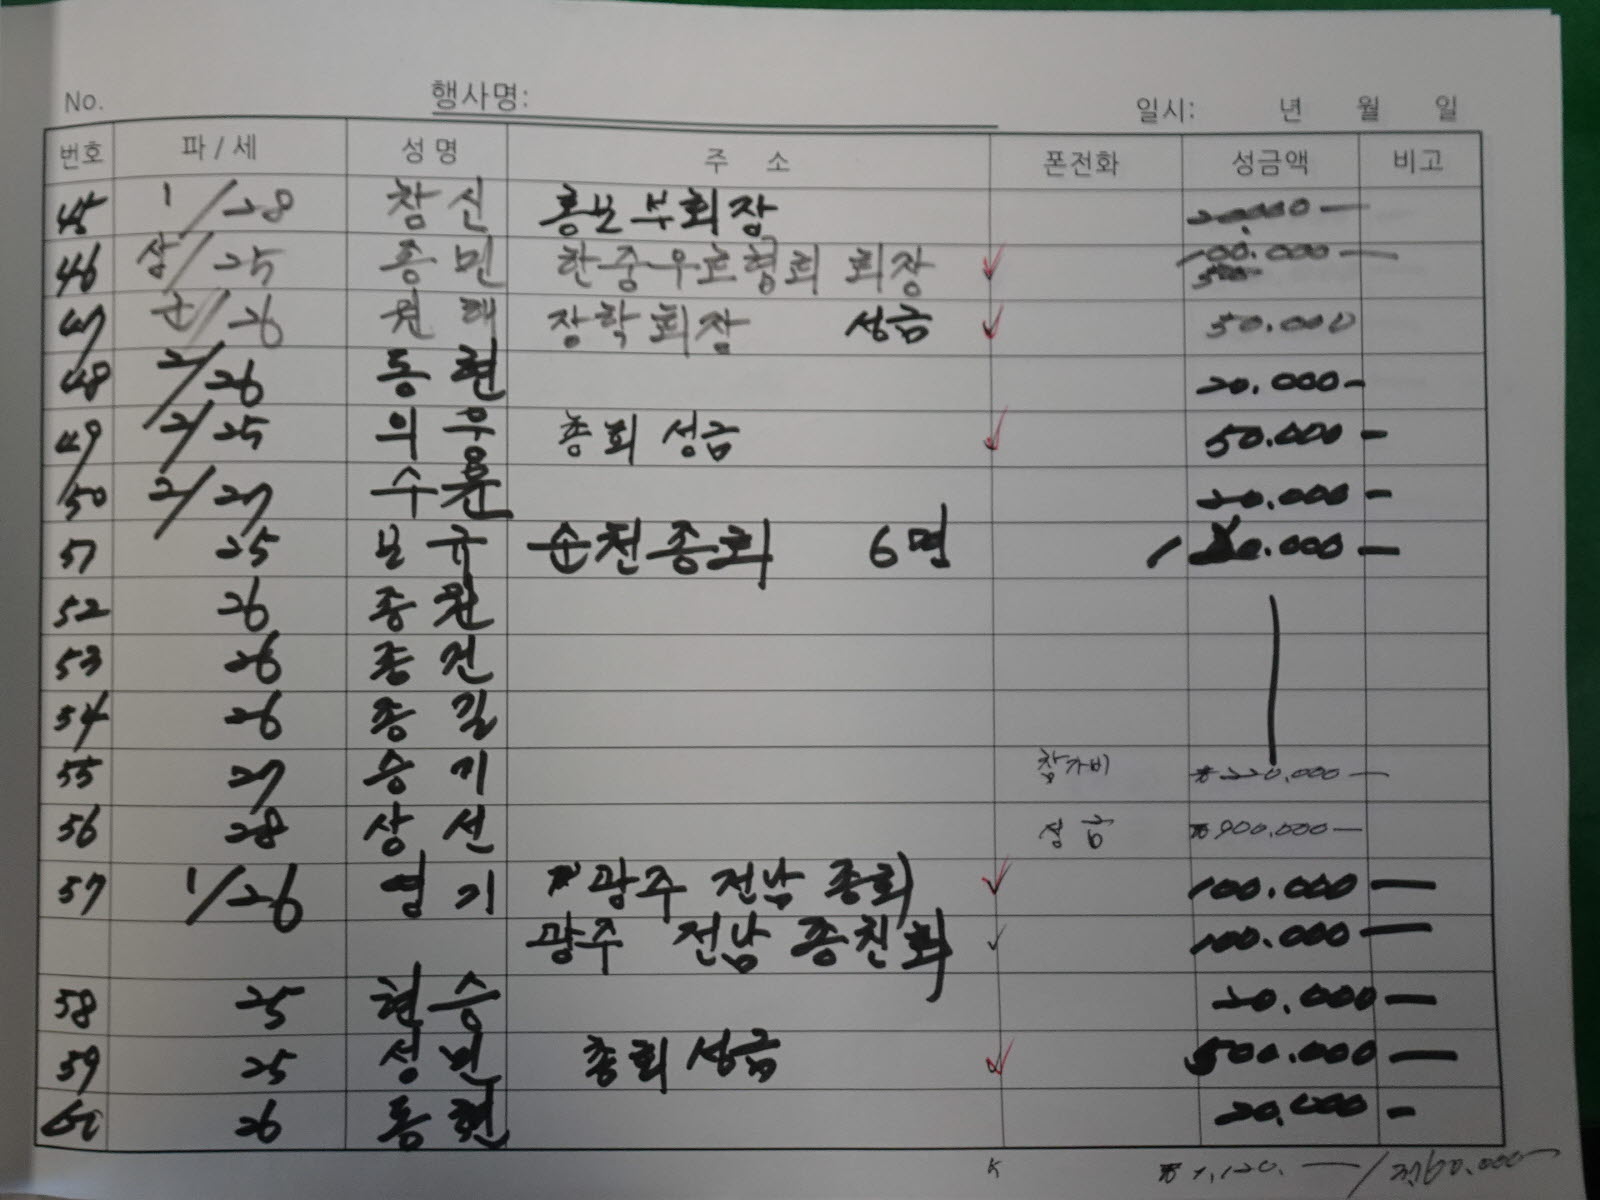 No. 행사명: 일시: 년 월 일
번호 파/세 성명 주 소 폰전화 성금액 비고
45 1/28 참신 홍보부회장 20.000-
46 삼/25 종민 한중우호협회 회장 100.000-
47 군/26 원태 장학회장 성금 50.000
48 2/26 동현 20.000-
49 2/25 의웅 총회 성금 50.000-
50 2/27 수훈 20.000-
51 25 보규 순천종회 6명 0.000-
52 26 종완
53 26 종건
54 26 종길
55 27 승기 참가비 ₩220,000-
56 28 상선 성금 ₩900,000-
57 1/26 영기 광주 전남 종회 100.000-
광주 전남 종친회 100.000-
58 25 현승 20.000-
59 25 성민 총회 성금 500.000-
60 26 동현 20.000-
₩1,120.-/